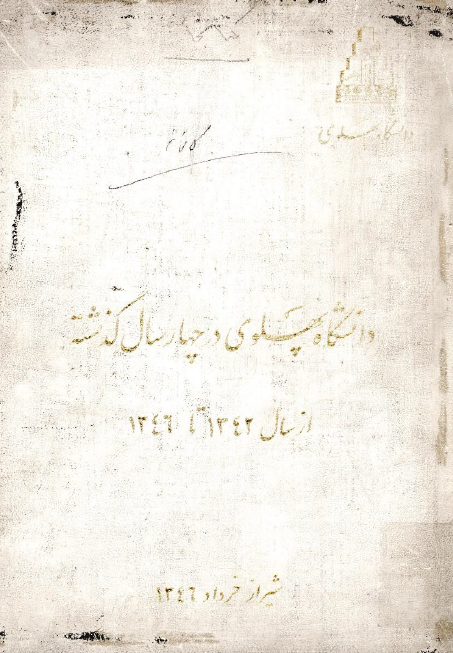 دانشگاه پهلوی
دانشگاه پهلوی در چهار سال گذشته
از سال ۱۳۴۲ تا ۱۳۴۶
شیراز خرداد ۱۳۴۶